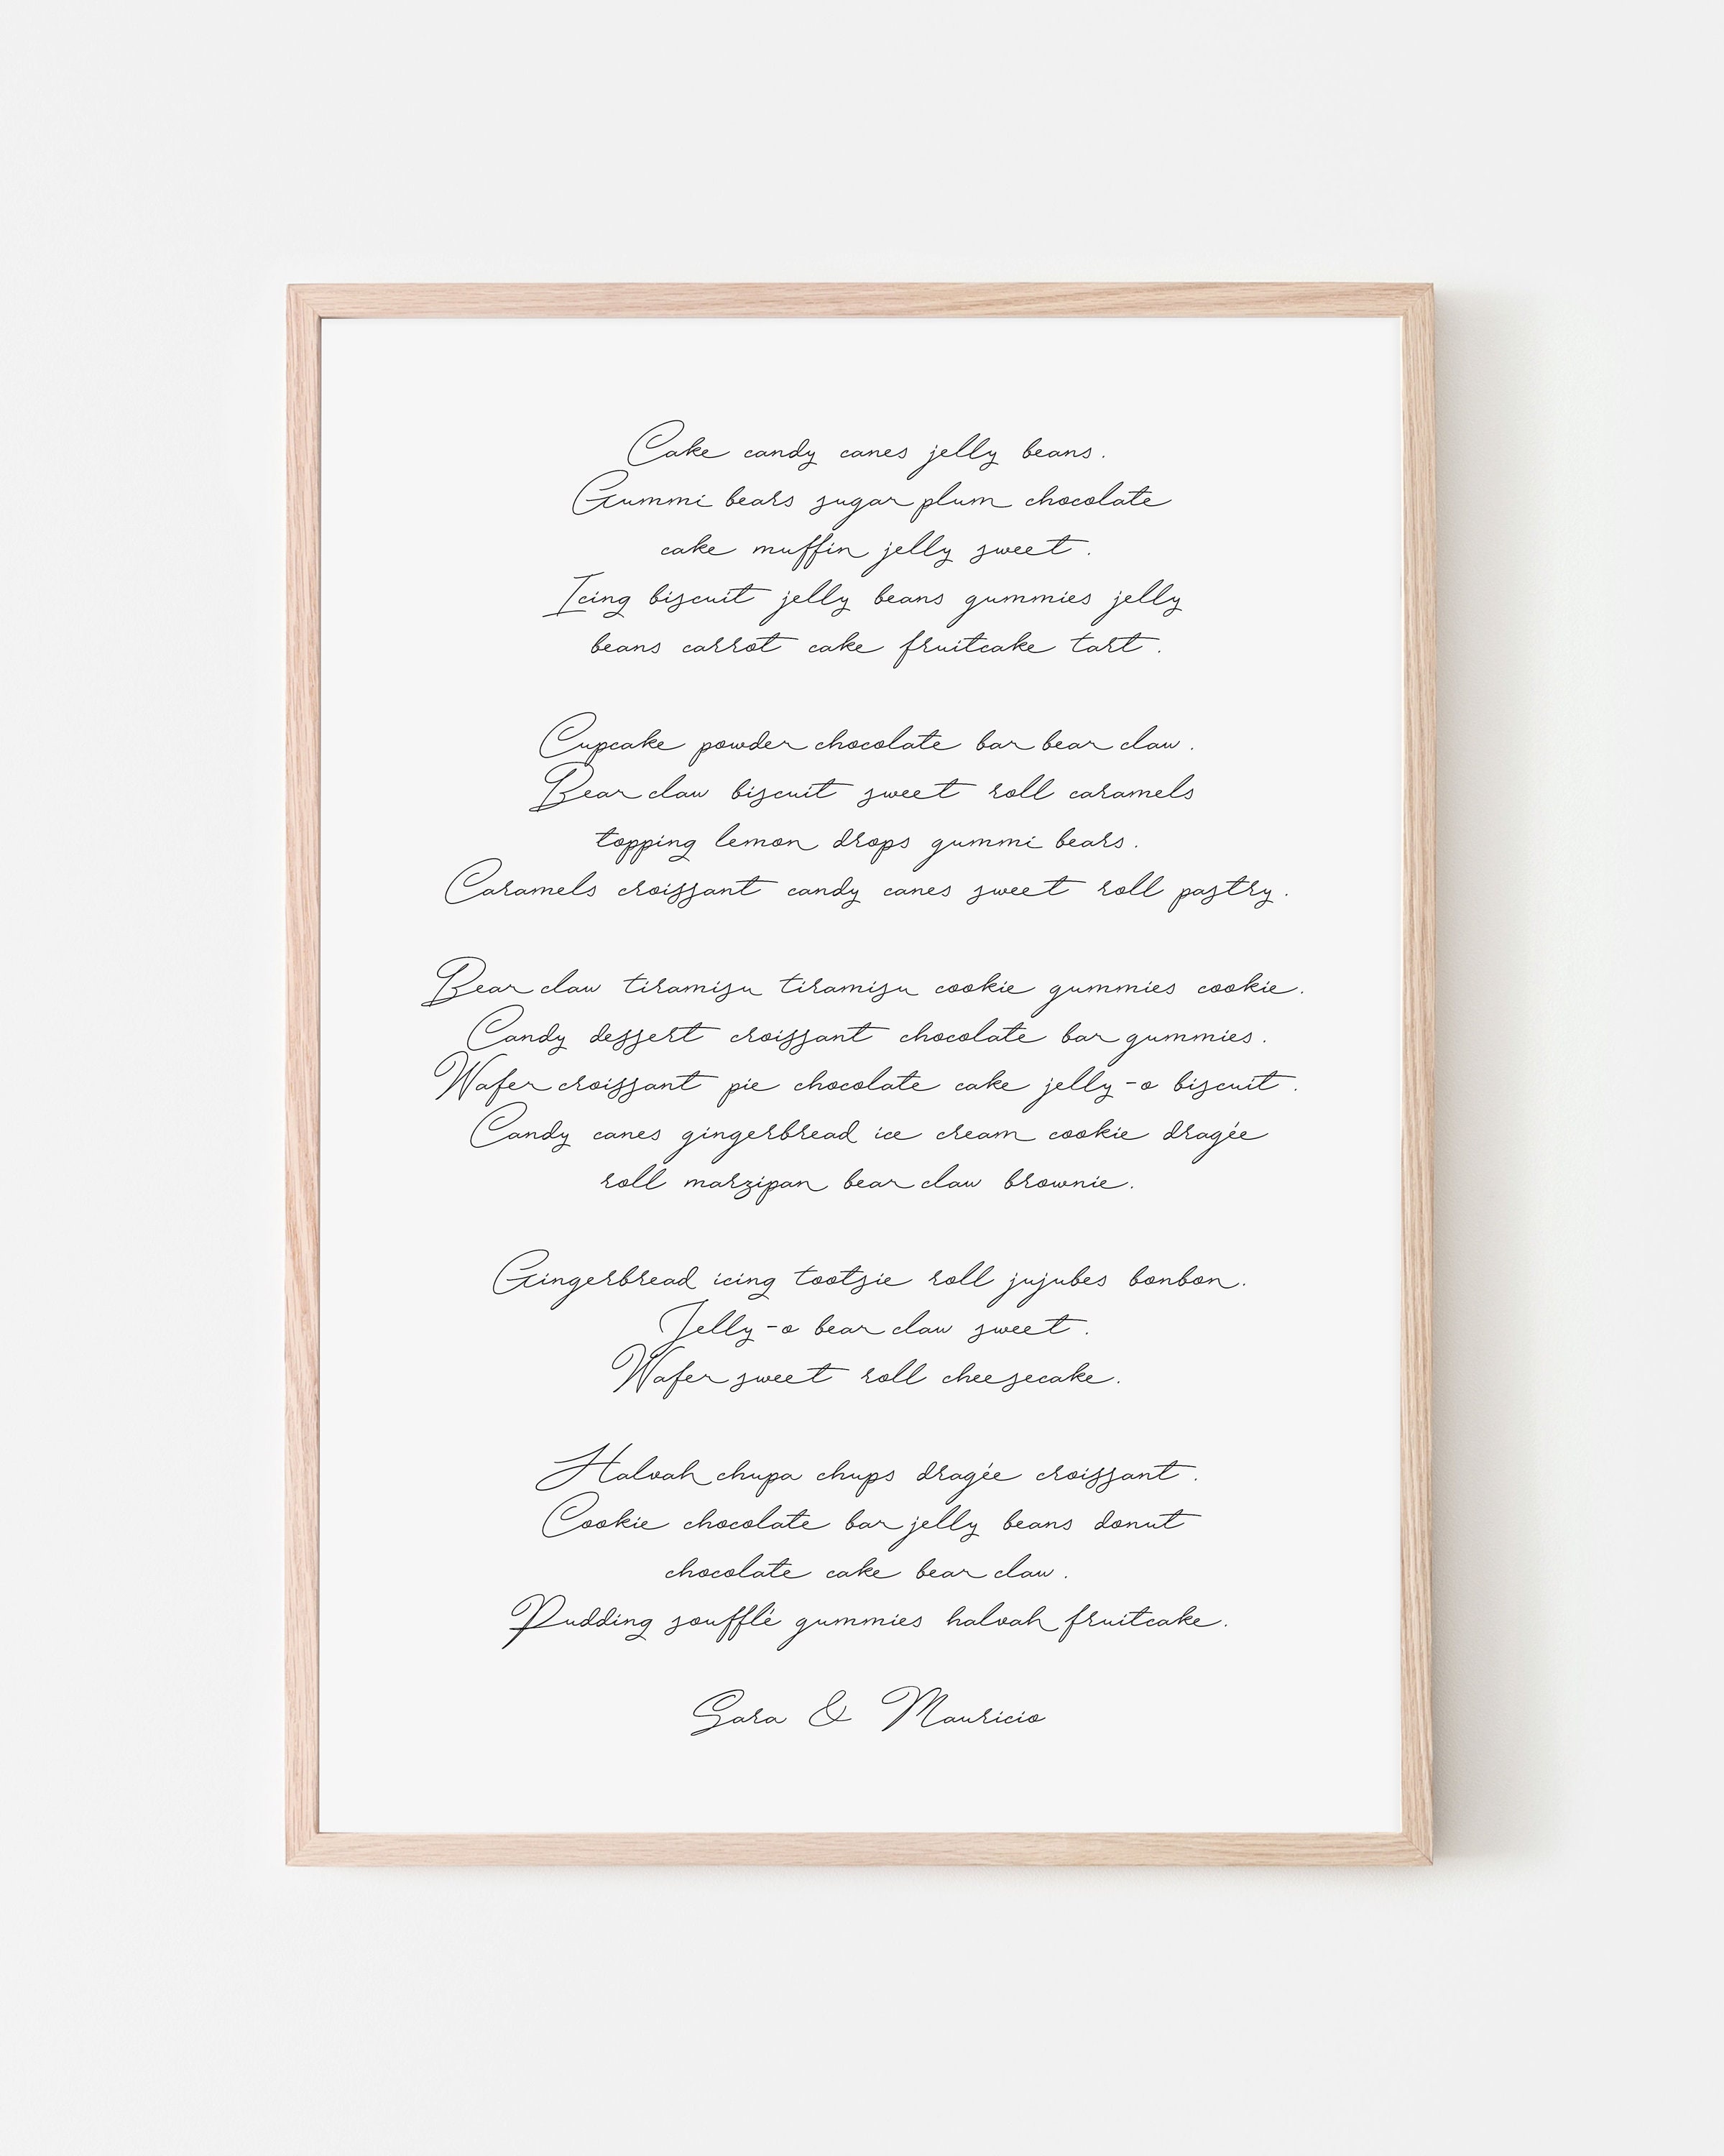 Cake candy canes jelly beans.
Gummi bears sugar plum chocolate
cake muffin jelly sweet.
Icing biscuit jelly beans gummies jelly
beans carrot cake fruitcake tart.
Cupcake powder chocolate bar bear claw.
Bear claw biscuit sweet roll caramels
topping lemon drops gummi bears.
Caramels croissant candy canes sweet roll pastry.
Bear claw tiramisu tiramisu cookie gummies cookie.
Candy dessert croissant chocolate bar gummies.
Wafer croissant pie chocolate cake jelly-o biscuit.
Candy canes gingerbread ice cream cookie dragée
roll marzipan bear claw brownie.
Gingerbread icing tootsie roll jujubes bonbon.
Jelly-o bear claw sweet.
Wafer sweet roll cheesecake.
Halvah chupa chups dragée croissant.
Cookie chocolate bar jelly beans donut
chocolate cake bear claw.
Pudding soufflé gummies halvah fruitcake.
Sara & Mauricio